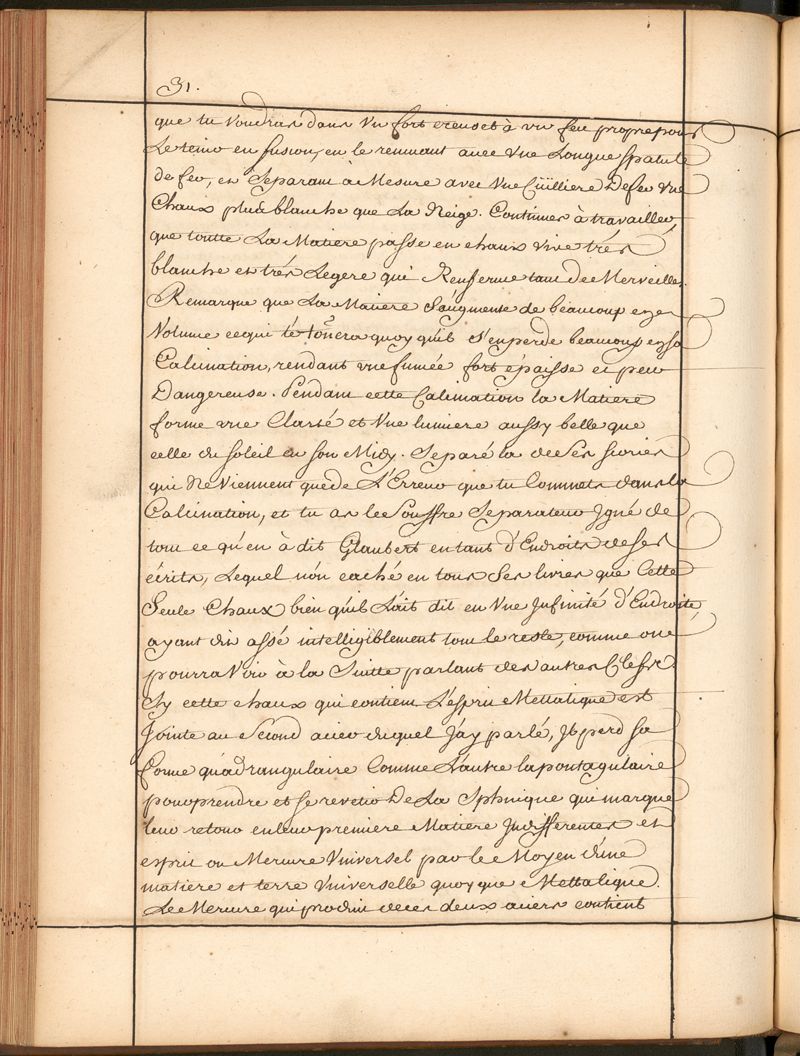 31.
que tu voudras dans un fort creuset à un feu propre pour
Le tenir en fusion, en le remuant avec Une Longue spatule
de fer, en Separant à Mesure avec Une Cüilliere De fer Une
Chaux plus blanche que La Neige. Continües à travailler,
que toutte La Matiere passe en chaux vive trés
blanche et trés Legere qui Renferme tant de Merveilles.
Remarque que La Matiere S'augmente de beaucoup en son
Volume ce qui t'étonera quoy qu'il s'en perde beaucoup en sa
Calcination, rendant une fumée fort épaisse et peu
Dangereuse. Pendant cette Calcination la Matiere
forme une Clarté et Une lumiere aussy belle que
celle du soleil en son Midy. Separé la de Ses scories
qui Ne Viennent que de L'Erreur que tu Commets dans la
Calcination, et tu as le Souffre Separateur Igné de
tout ce qu'en à dit Glaubert en tant d'Endroits de ses
écrits, Lequel n'on caché en tous Ses livres que Cette
Seule Chaux bien qu'il L'ait dit en Une Infinité d'Endroits,
ayant dit assé intelligiblement tout le reste, comme on
pourra Voir à la Suitte parlant des autres Clefs.
Sy cette chaux qui contient L'esprit Mettalique est
Jointe au Second acier duquel J'ay parlé, Il perd sa
forme quadrangulaire Comme L'autre la pontagulaire
pour prendre et se revetir De La Sphrique qui marque
leur retour en leur premiere Matiere Indifferentes et
esprit ou Mercure Universel par le Moyen d'une
matiere et terre Universelle quoy que Mettalique.
Le Mercure qui produit de ces deux aciers contient